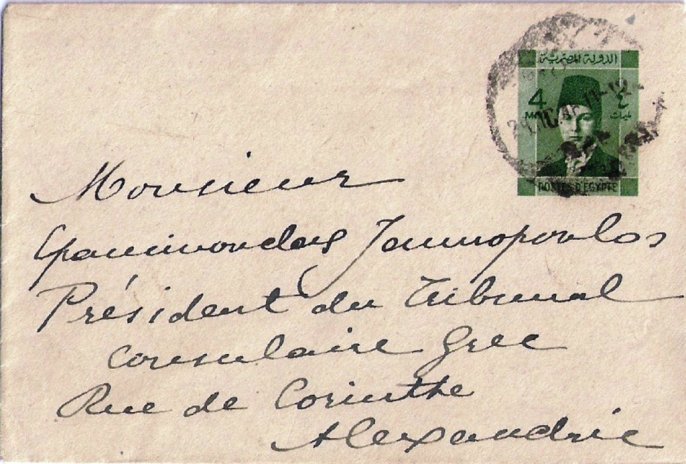 الدولة المصرية
4 ٤
MILLS مليمات
POSTES D'EGYPTE
Monsieur
Epaminondas Jannopoulos
Président du Tribunal
Consulaire Grec
Rue de Corinthe
Alexandrie